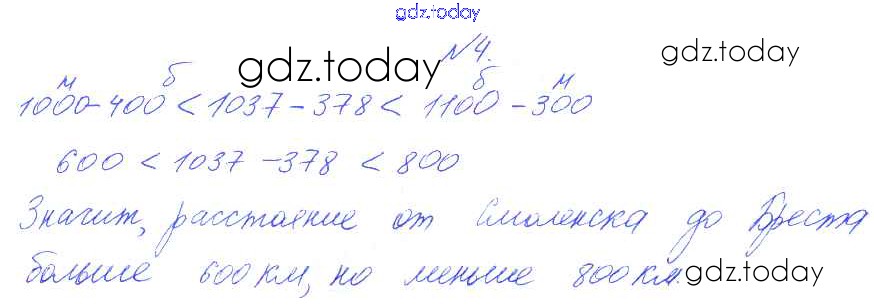 gdz.today
№4.
gdz.today
gdz.today
м б б м
1000-400 < 1037-378 < 1100-300
600 < 1037-378 < 800
Значит, расстояние от Смоленска до Бреста
больше 600 км, но меньше 800 км.
gdz.today